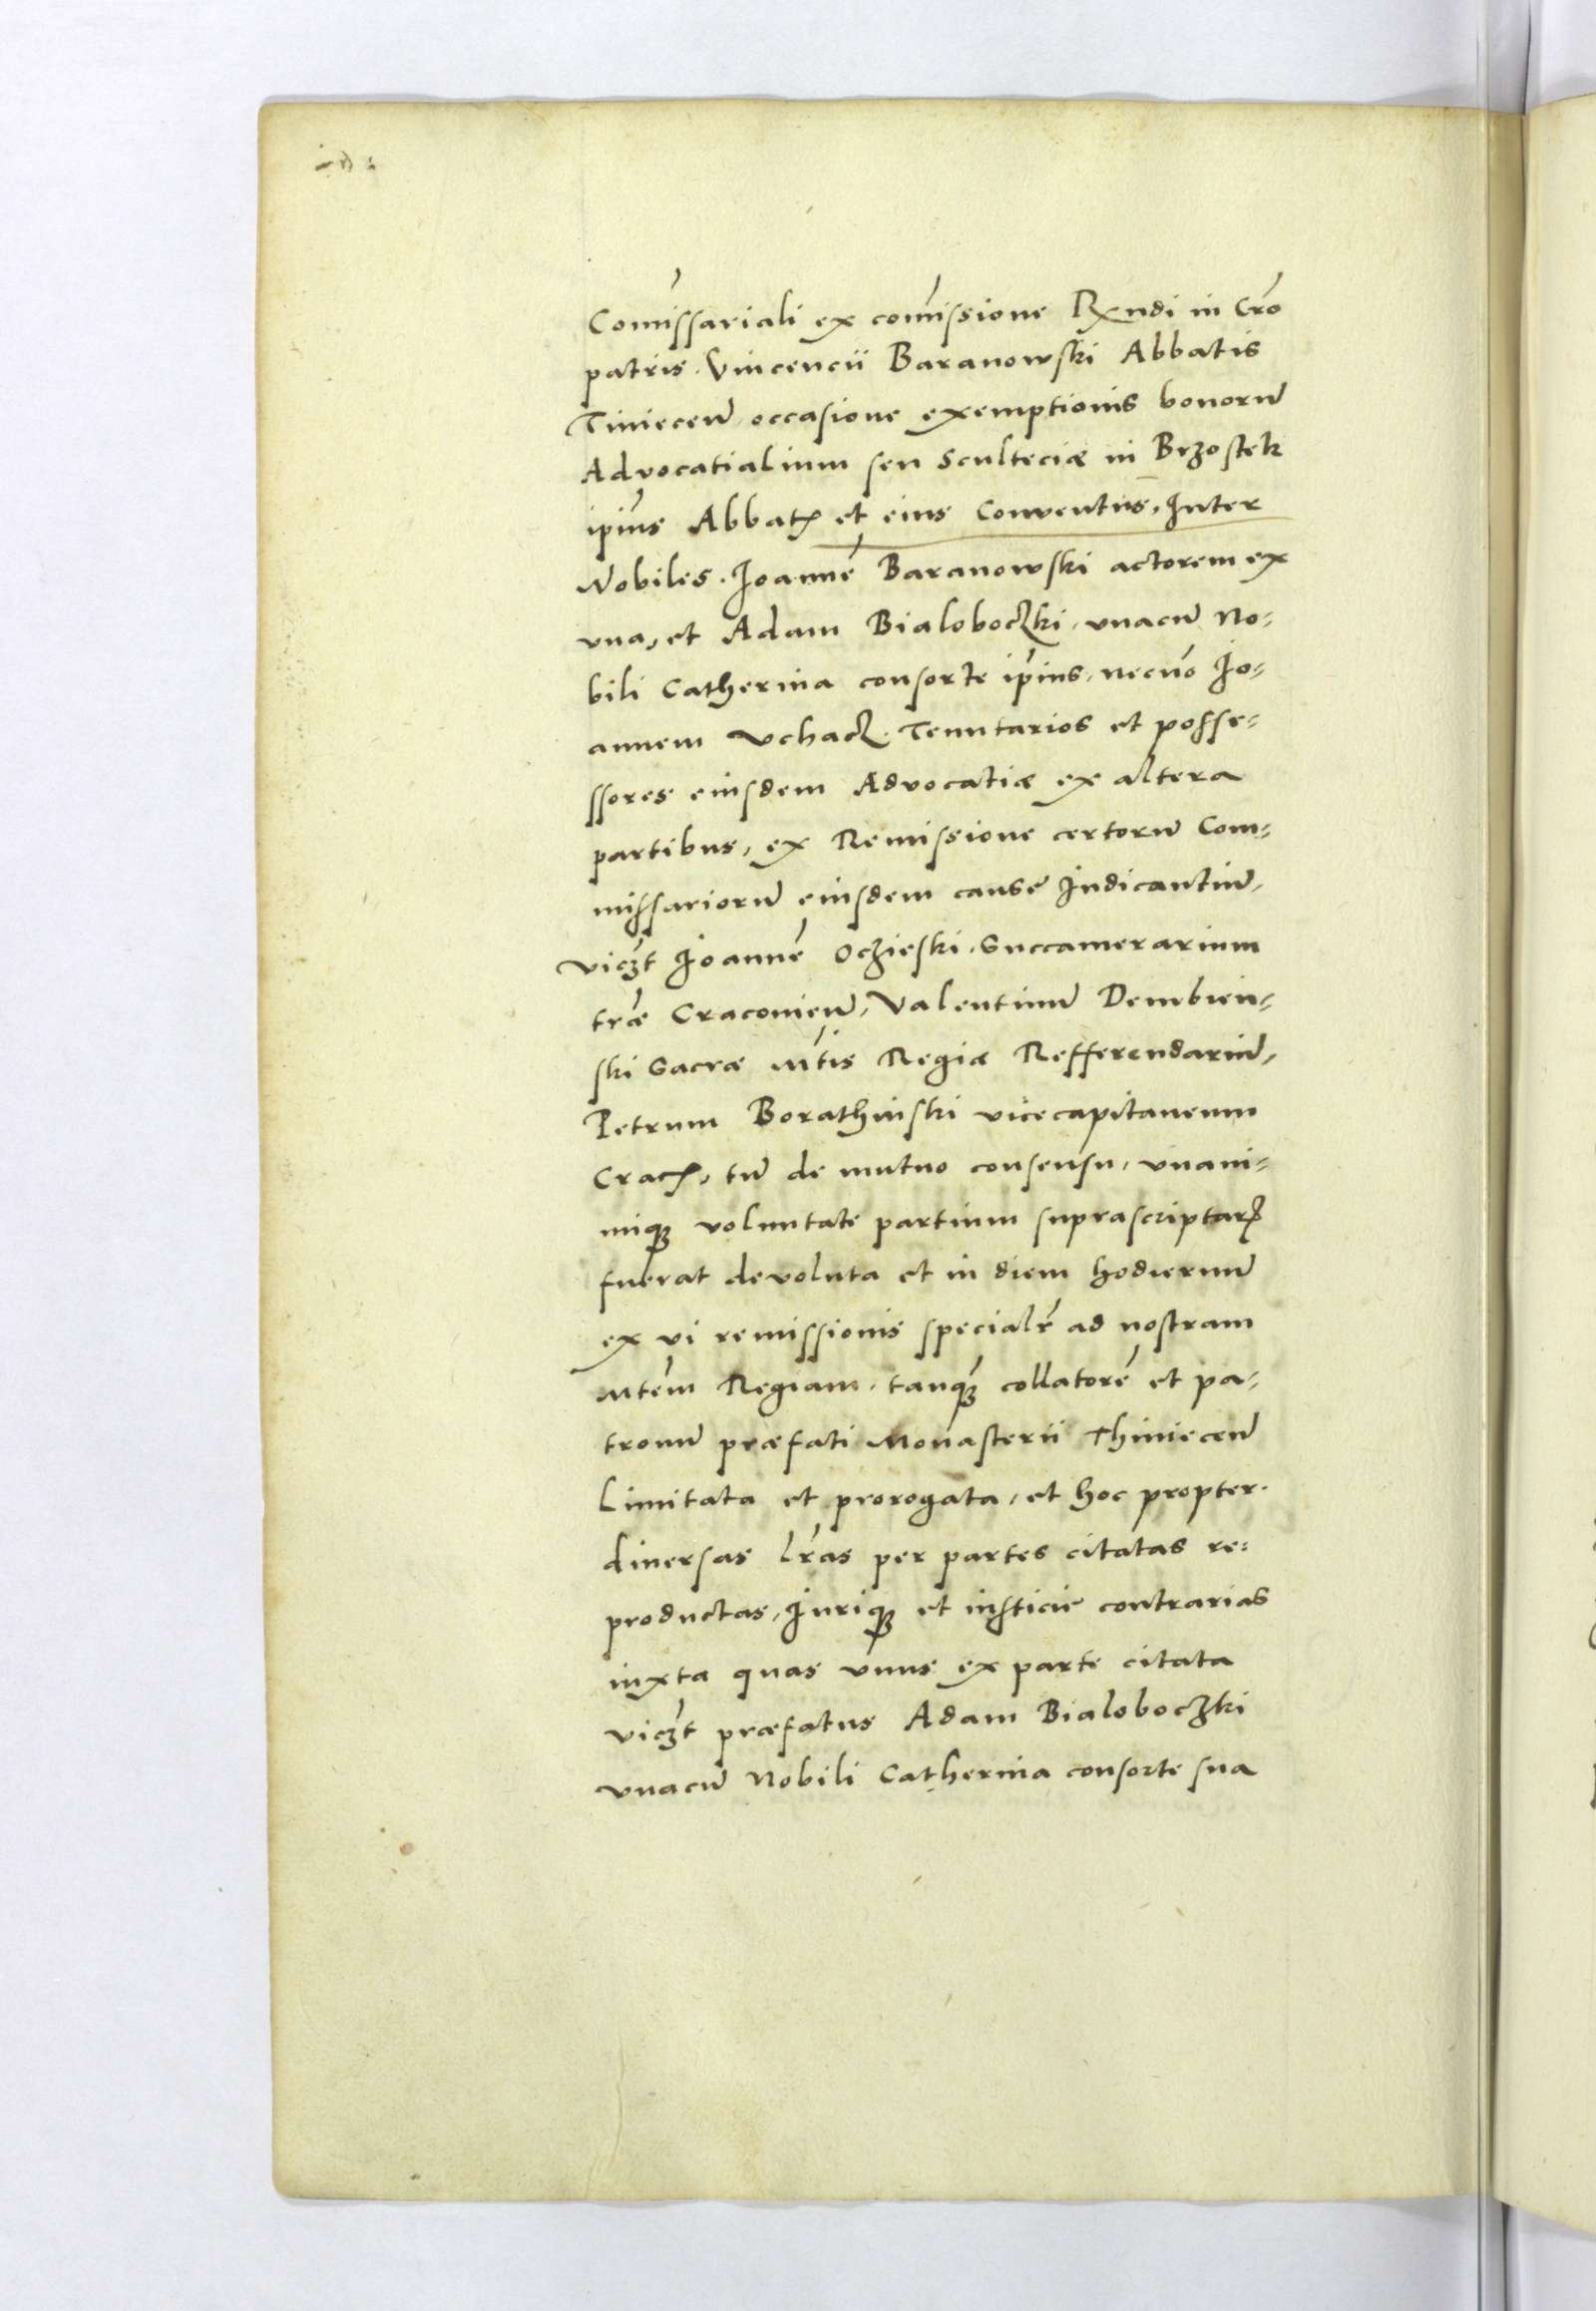 Com̃issariali ex com̃issione Rx̃ndi in Cr̃o
patris. Vincencii Baranowski Abbatis
Tiniecen̄ occasione exemptionis bonorū
Advocatialium seu Scultecię in Brzostek
ip̃ius Abbatꝭ et eius Conventus, Inter
Nobiles. Joannē Baranowski actorem ex
vna, et Adam Bialoboczki, vnacū No-
bili Catherina consorte ip̃ius, necnõ Jo-
annem Vchacz. Tenutarios et posse-
ssores eiusdem Advocatiæ ex altera
partibus, ex Remissione certorū Com-
missariorū eiusdem cause Iudicantiū,
vicz̃t Joannē Oczieski. Succamerarium
tr̃æ Cracovien̄, Valentinū Dembien-
ski Sacræ Mt̃is Regiæ Refferendariū,
Petrum Borathinski vicecapitaneum
Cracꝭ, tū de mutuo consensu, vnani-
miqꝫ voluntate partium suprascriptarꝭ
fuerat devoluta et in diem hodiernū
ex vi remissionis specialr̃ ad nostram
Mt̃em Regiam, tanqꝫ̃ collatorē et pa-
tronū præfati Monasterii Thiniecen̄
Limitata et prorogata, et hoc propter.
diuersas lr̃as per partes citatas re-
productas, Juriqꝫ et iusticie contrarias
iuxta quas vnus ex parte citata
vicz̃t præfatus Adam Bialoboczki
vnacū Nobili Catherina consorte sua